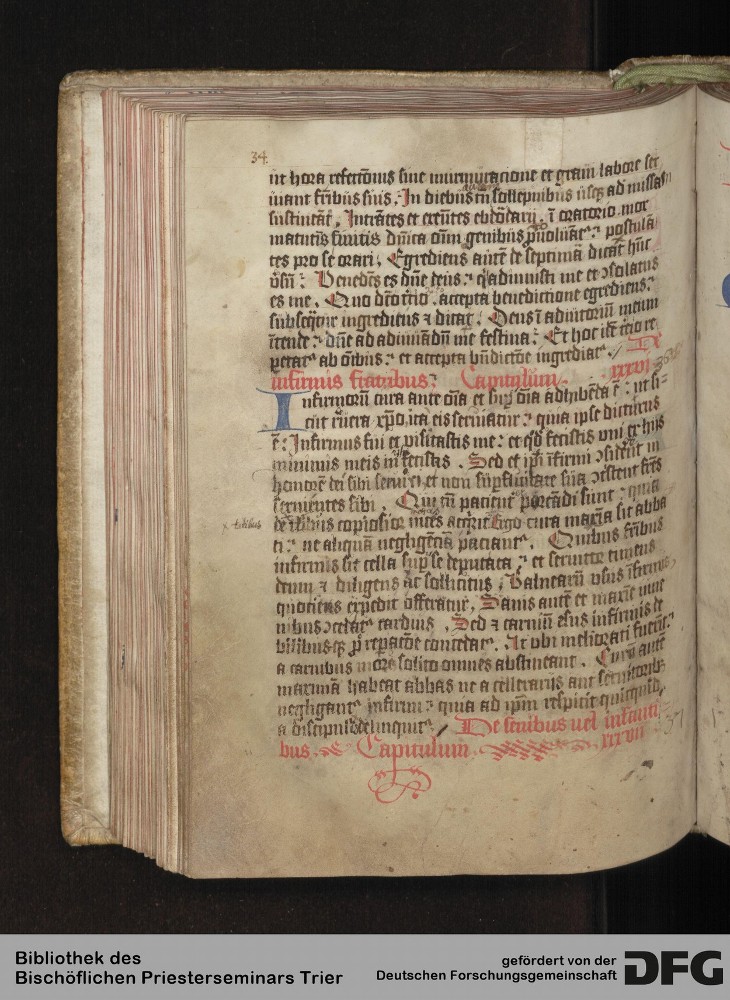 34
ut hora refectōnis sine murmuracione et graui labore ser
uiant frībus suis. In diebus tn̄ sollepnibus usq̢ ad missas
sustineāt. Intrātes et exeūtes ebdōarij ī oratorio mox
matutīs finitis dn̄ica oīm genibus ꝓuoluāt᷑ postulā
tes pro se orari. Egrediens autē de septimā dicat hūc
v̄sū: Benedc̄s es dn̄e deus qͥ adiuuisti me et ꝯsolatus
es me. Quo dc̄o accepta benedictione egrediens
subseqͥtur ingrediens ⁊ dicat. Deus ī adiutoriū meum
ītende dn̄e ad adiuuādū me festina: Et hoc id̄ t̄cio re
petat᷑ ab oīb᷒ et accepta bn̄dictōe ingrediat᷑. De
infirmis fratribus: Capitulum. xxxvi 36
Infirmorū cura ante oīa et suꝑ oīa adhibēda ē: ut si-
cut reuera xp̄o ita eis seruiatur quia ipse dicturus
ē: Infirmus fui et visitastis me: et qd̄ fecistis vni ex hijs
minimis meis m fecistis. Sed et ip̄i īfirmi ꝯsiderēt in
honorē dei sibi seruiri et non suꝑfluitate sua ꝯtristent frēs
seruientes sibi. Qui tn̄ pacient᷑ portādi sunt quia
de copiosior m̄ces acqͥrit᷑ Ergo cura maxīa sit abba
ti: ne aliquā negligēciā paciant᷑. Quibus frībus
infirmis sit cella suꝑ se deputata et seruitor timens
deum ⁊ diligens ac sollicitus. Balnearū vsus īfirmis
quociens expedit offeratur. Sanis autē et maxīe iuue
nibus ꝯcedat᷑ tardius. Sed ⁊ carniū esus infirmis de
bilibusq̢ ꝓ reparatōe concedat᷑. At vbi meliorati fuerīt
a carnibus more solito omnes abstineant. Curā autē
maximā habeat abbas ne a cellerarijs aut seruitorib᷒
negligant᷑ infirmi: quia ad ip̄m respicit quicquid
a discipulis delinquit᷑. De senibus uel infanti-
bus. Capitulum xxxvii 37
Bibliothek des
Bischöflichen Priesterseminars Trier
gefördert von der
Deutschen Forschungsgemeinschaft
DFG